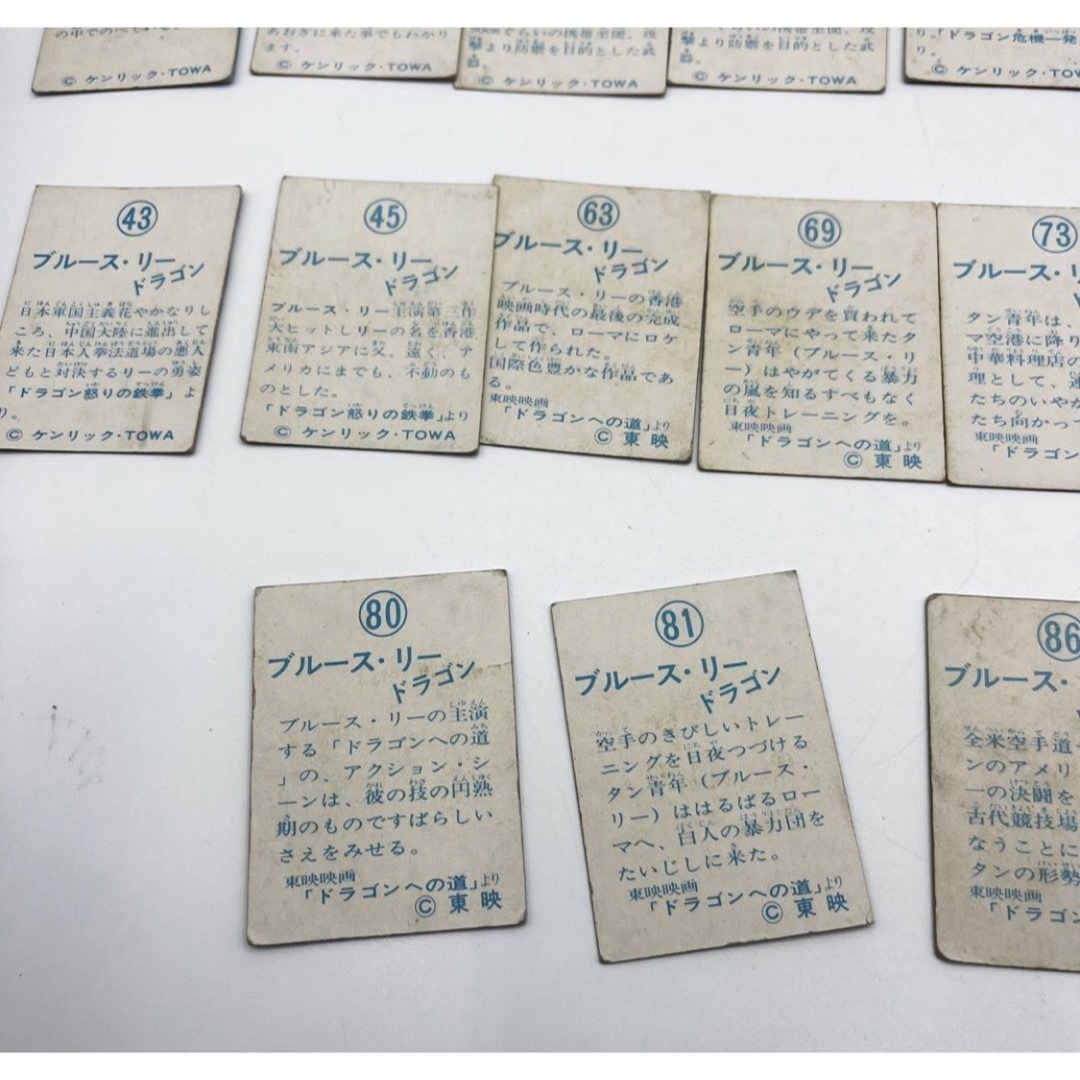 あおぎに来た事でもわかり
ます。
© ケンリック・TOWA
© ケンリック・TOWA
撃より防禦を目的とした武
器。
© ケンリック・TOWA
撃より防禦を目的とした武
器。
© ケンリック・TOWA
「ドラゴン危機一発
り。
© ケンリック・TOWA
43
ブルース・リー
ドラゴン
日本軍国主義花やかなりし
ころ、中国大陸に進出して
来た日本人拳法道場の悪人
どもと対決するリーの勇姿
「ドラゴン怒りの鉄拳」よ
り。
© ケンリック・TOWA
45
ブルース・リー
ドラゴン
ブルース・リー主演第三作
大ヒットしリーの名を香港
東南アジアに又、遠く、ア
メリカにまでも、不動のも
のとした。
「ドラゴン怒りの鉄拳」より
© ケンリック・TOWA
63
ブルース・リー
ドラゴン
ブルース・リーの香港
映画時代の最後の完成
作品で、ローマにロケ
して作られた。
国際色豊かな作品であ
る。
東映映画
「ドラゴンへの道」より
© 東映
69
ブルース・リー
ドラゴン
空手のウデを買われて
ローマにやって来たタ
ン青年（ブルース・リ
ー）はやがてくる暴力
の嵐を知るすべもなく
日夜トレーニングを。
東映映画
「ドラゴンへの道」より
© 東映
73
ブルース・リ
タン青年は、
マ空港に降り
中華料理店の
理として、連
たちのいやが
たち向かって
東映映画
「ドラゴン
80
ブルース・リー
ドラゴン
ブルース・リーの主演
する「ドラゴンへの道
」の、アクション・シ
ーンは、彼の技の円熟
期のものですばらしい
さえをみせる。
東映映画
「ドラゴンへの道」より
© 東映
81
ブルース・リー
ドラゴン
空手のきびしいトレー
ニングを日夜つづける
タン青年（ブルース・
リー）ははるばるロー
マへ、白人の暴力団を
たいじしに来た。
東映映画
「ドラゴンへの道」より
© 東映
86
ブルース・
全米空手道
ンのアメリ
一の決闘を
古代競技場
なうことに
タンの形勢
東映映画
「ドラゴ